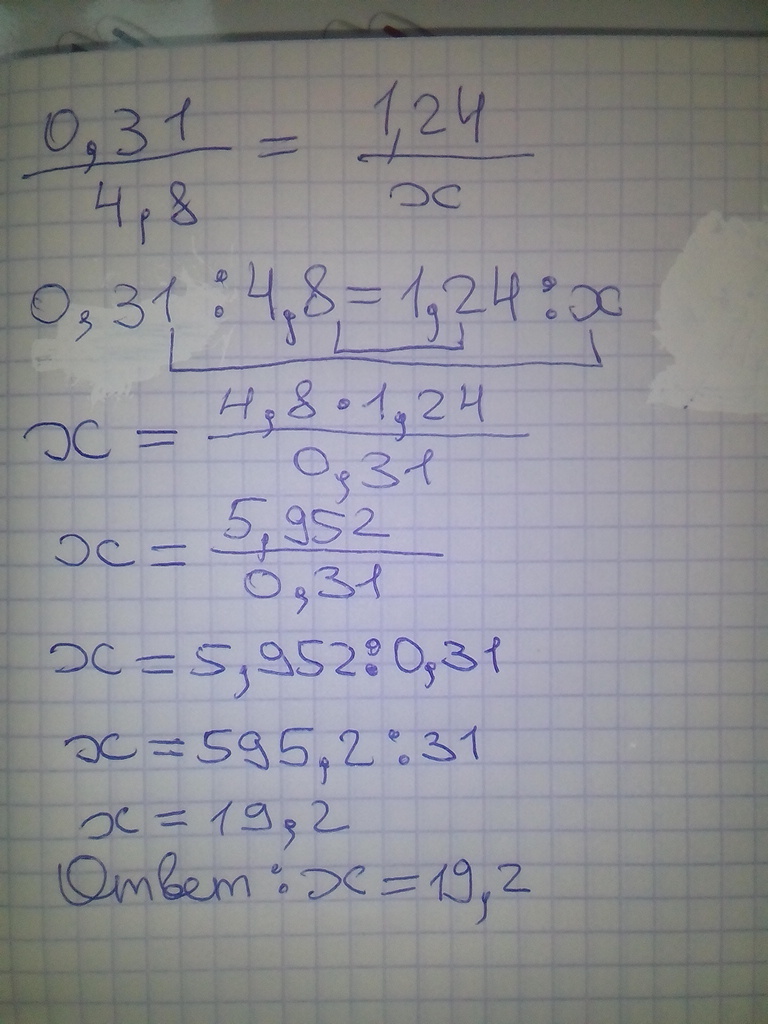 0,31 / 4,8 = 1,24 / x
0,31 : 4,8 = 1,24 : x
x = 4,8 · 1,24 / 0,31
x = 5,952 / 0,31
x = 5,952 : 0,31
x = 595,2 : 31
x = 19,2
Ответ : x = 19,2